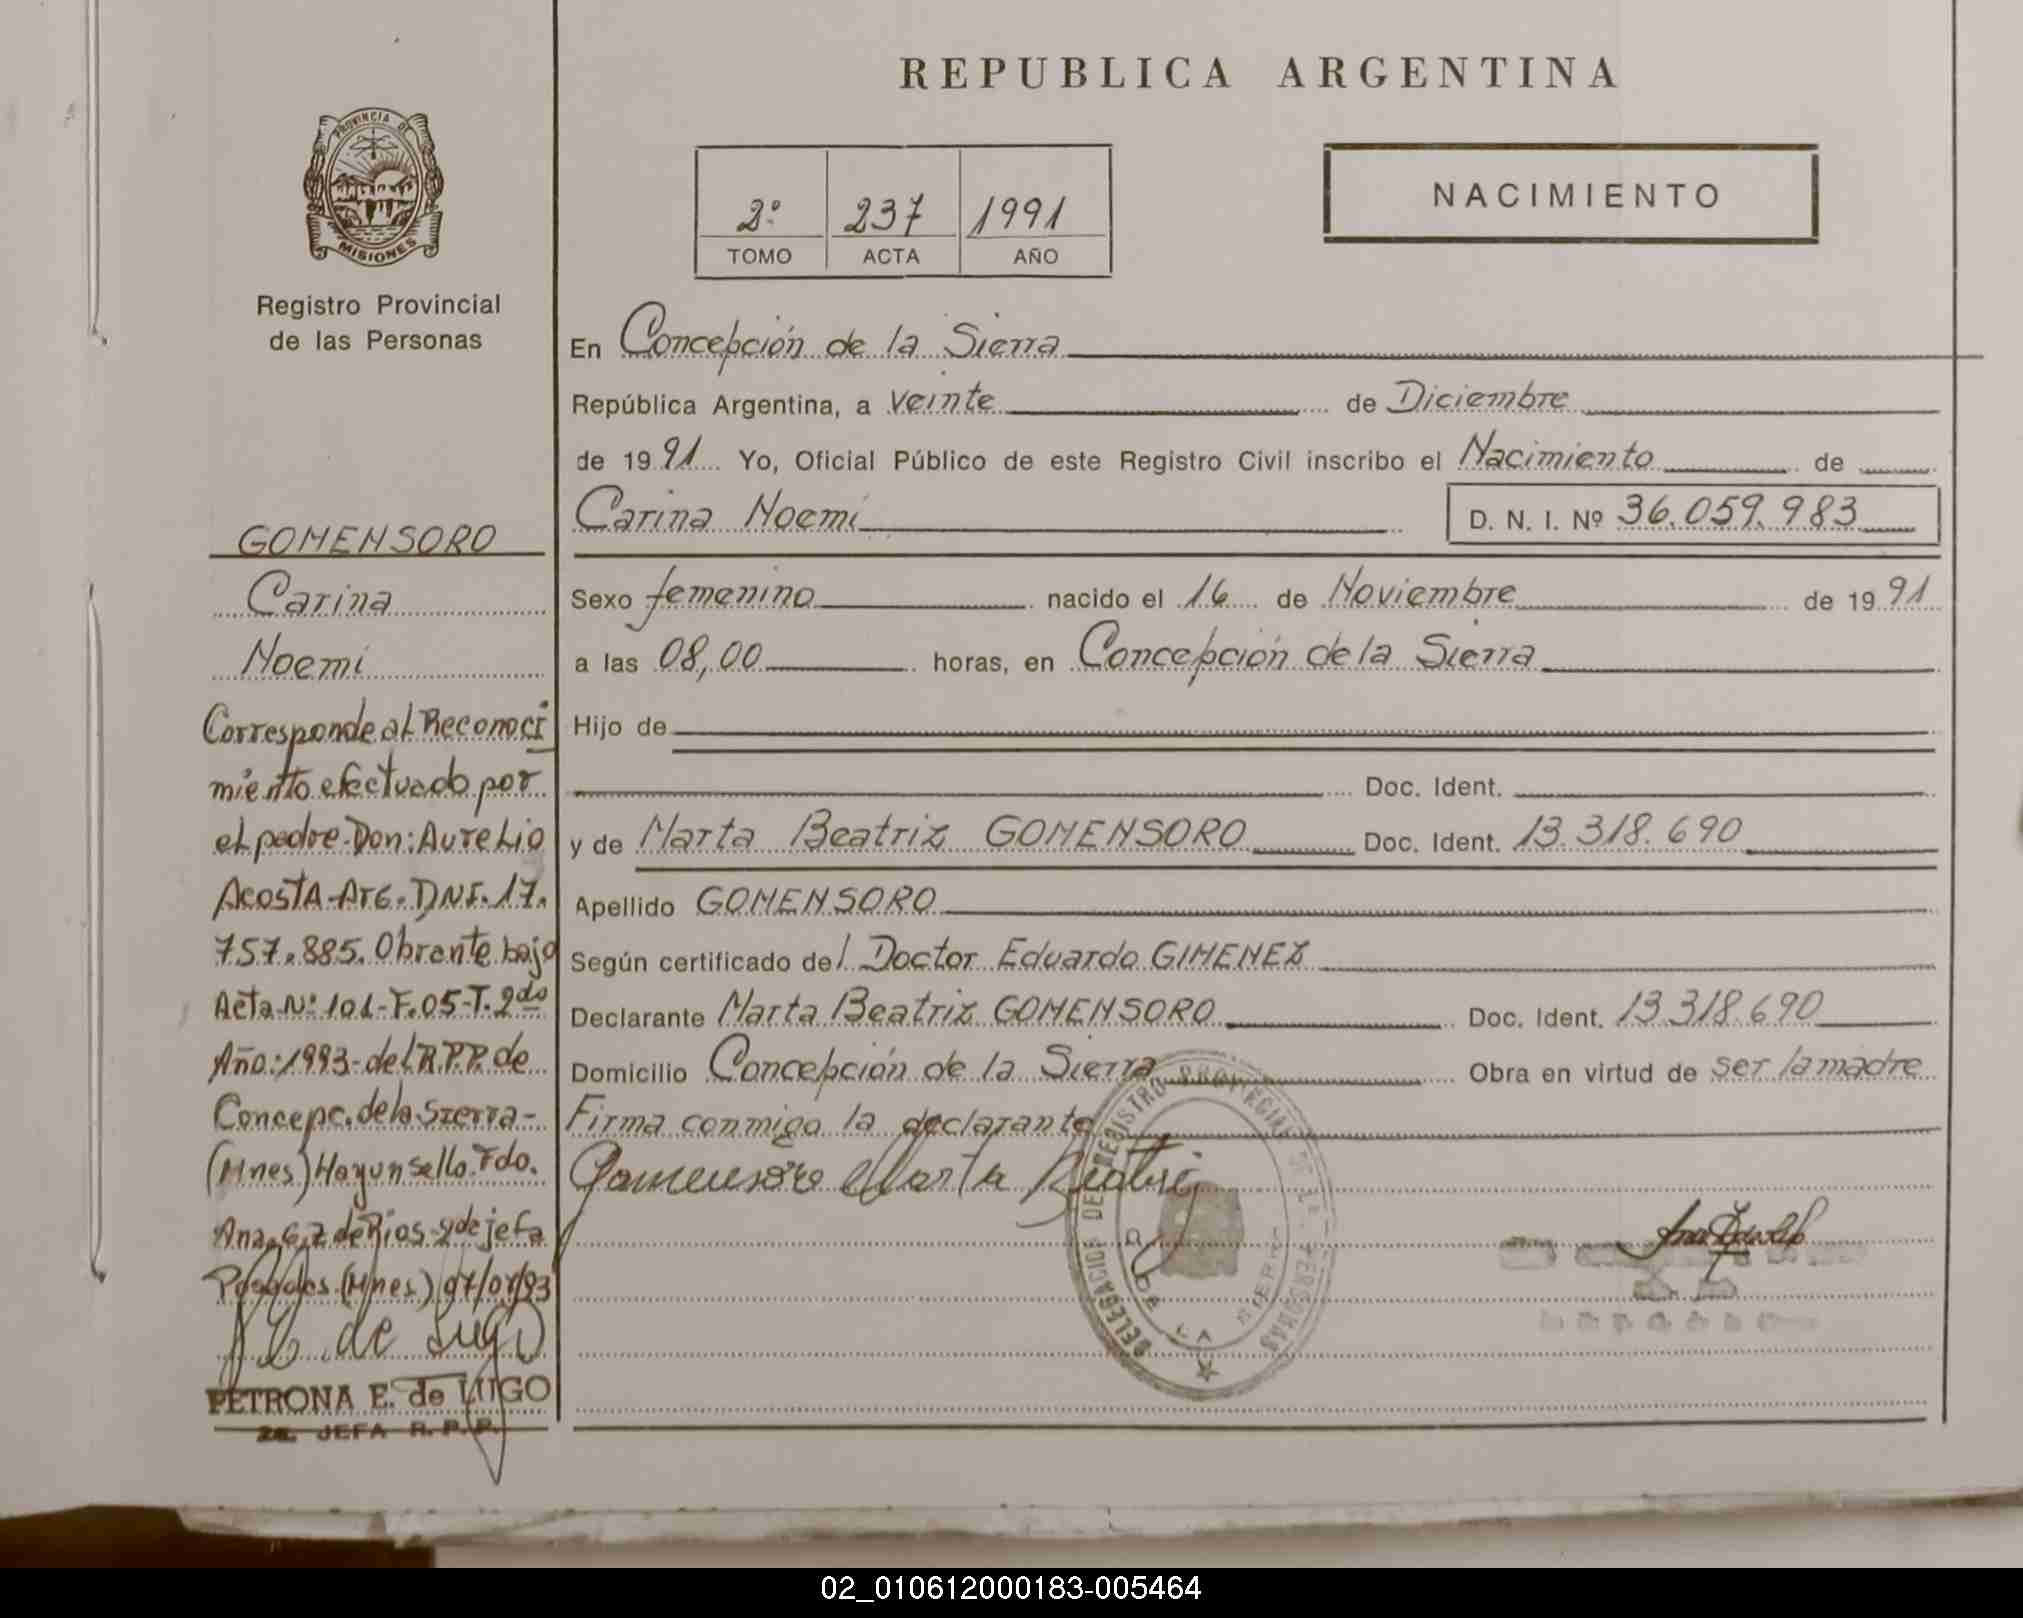 REPUBLICA ARGENTINA
PROVINCIA DE
MISIONES
Registro Provincial
de las Personas
2º 237 1991
TOMO ACTA AÑO
NACIMIENTO
En Concepción de la Sierra
República Argentina, a veinte de Diciembre
de 1991 Yo, Oficial Público de este Registro Civil inscribo el Nacimiento de
Carina Noemí D. N. I. Nº 36.059.983
Sexo femenino nacido el 16 de Noviembre de 1991
a las 08,00 horas, en Concepción de la Sierra
Hijo de
Doc. Ident.
y de Marta Beatriz GOMENSORO Doc. Ident. 13.318.690
Apellido GOMENSORO
Según certificado del Doctor Eduardo GIMENEZ
Declarante Marta Beatriz GOMENSORO Doc. Ident. 13.318.690
Domicilio Concepción de la Sierra Obra en virtud de ser la madre
Firma conmigo la declarante
Gomensoro Marta Beatriz
DELEGACION DEL REGISTRO PROVINCIAL DE LAS PERSONAS
DE LA SIERRA
GOMENSORO
Carina
Noemí
Corresponde al Reconoci
miento efectuado por
el padre Don: Aurelio
Acosta-Arg. DNI. 17.
757.885. Obrante bajo
Acta Nº 101-F.05-T.2do
Año: 1993-del R.P.P. de
Concepc. de la Sierra-
(Mnes) Hay un sello. Fdo.
Ana G. Z de Rios-2da jefa
Posadas (Mnes) 07/01/93
P. E. de Lugo
PETRONA E. de LUGO
2a. JEFA R. P. P.
02_010612000183-005464